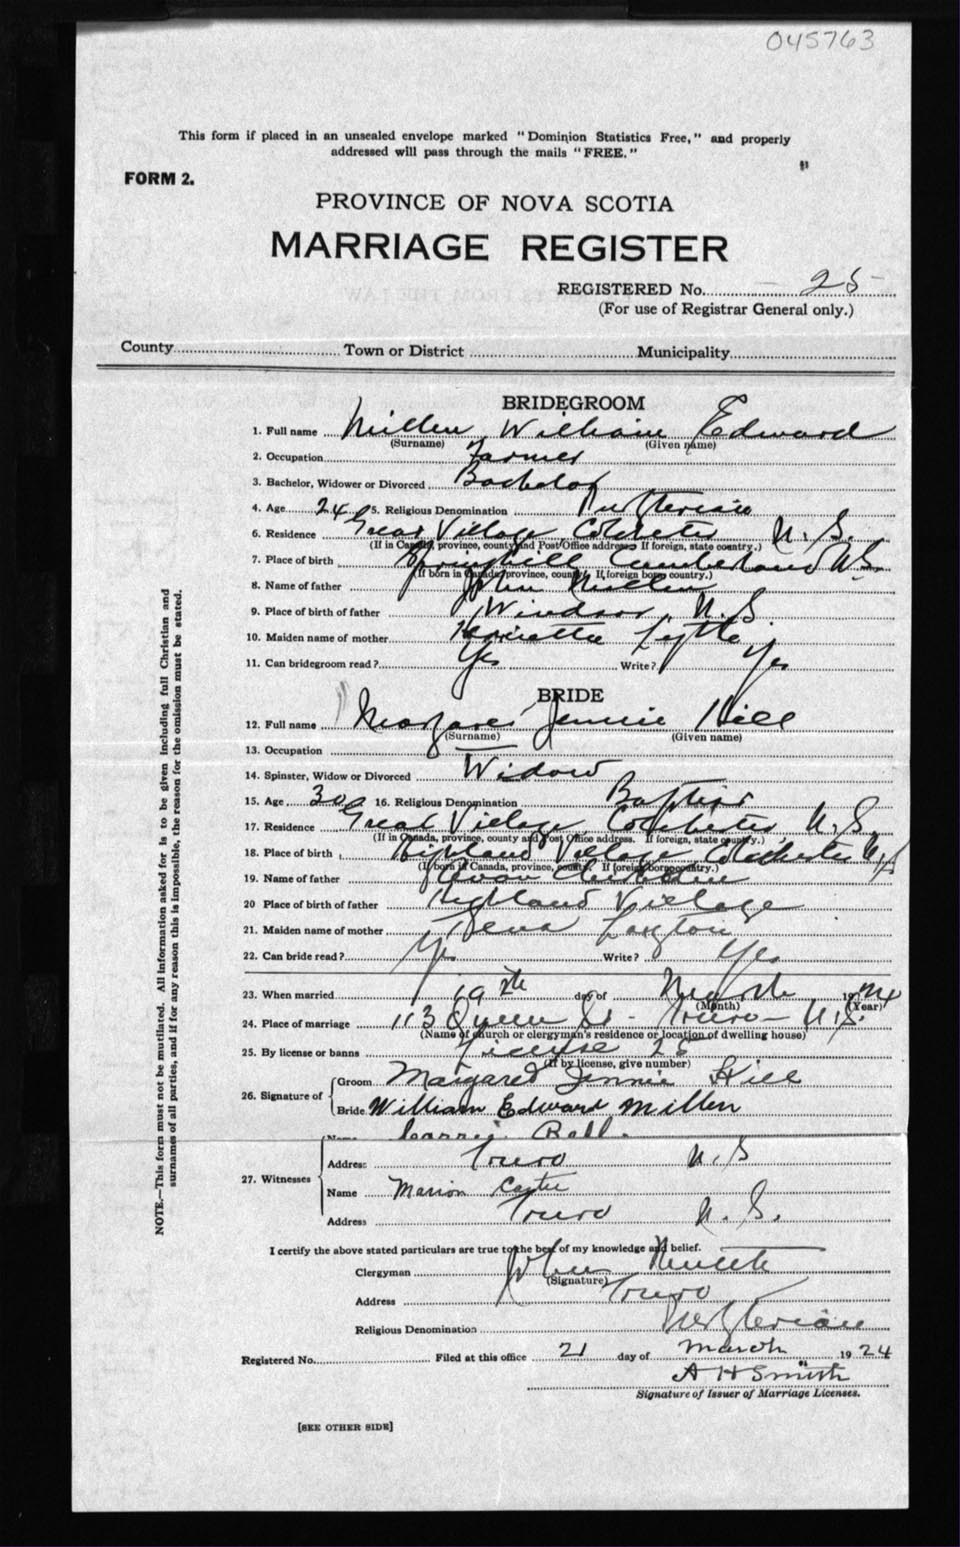 045763
This form if placed in an unsealed envelope marked "Dominion Statistics Free," and properly
addressed will pass through the mails "FREE."
FORM 2.
PROVINCE OF NOVA SCOTIA
MARRIAGE REGISTER
REGISTERED No. 25
(For use of Registrar General only.)
County Town or District Municipality
BRIDEGROOM
1. Full name Millen William Edward
(Surname) (Given name)
2. Occupation Farmer
3. Bachelor, Widower or Divorced Bachelor
4. Age 24 5. Religious Denomination
6. Residence Great Village Colchester N.S.
(If in Canada, province, county and Post Office address. If foreign, state country.)
7. Place of birth Springhill Cumberland N.S.
(If born in Canada, province, county. If foreign born, country.)
8. Name of father John Millen
9. Place of birth of father Windsor, N.S.
10. Maiden name of mother Henrietta Lyttle
11. Can bridegroom read? Yes Write? Yes
BRIDE
12. Full name Margaret Jennie Hill
(Surname) (Given name)
13. Occupation —
14. Spinster, Widow or Divorced Widow
15. Age 30 16. Religious Denomination Baptist
17. Residence Great Village, Colchester, N.S.
(If in Canada, province, county and Post Office address. If foreign, state country.)
18. Place of birth Highland Village Colchester N.S.
(If born in Canada, province, county. If foreign born, country.)
19. Name of father
20 Place of birth of father Highland Village
21. Maiden name of mother
22. Can bride read? Yes Write? Yes
23. When married 19th day of March 1924
(Month) (Year)
24. Place of marriage 113 Queen St - Truro - N.S.
(Name of church or clergyman's residence or location of dwelling house)
25. By license or banns License 28
(If by license, give number)
26. Signature of
Groom Margaret Jennie Hill
Bride William Edward Millen
Name Carrie Bell.
27. Witnesses
Address Truro N.S
Name Marion
Address Truro N.S.
I certify the above stated particulars are true to the best of my knowledge and belief.
Clergyman John
(Signature)
Address Truro
Religious Denomination
Registered No. Filed at this office 21 day of March 1924
A H Smith
Signature of Issuer of Marriage Licenses.
[SEE OTHER SIDE]
NOTE.—This form must not be mutilated. All information asked for is to be given including full Christian and
surnames of all parties, and if for any reason this is impossible, the reason for the omission must be stated.